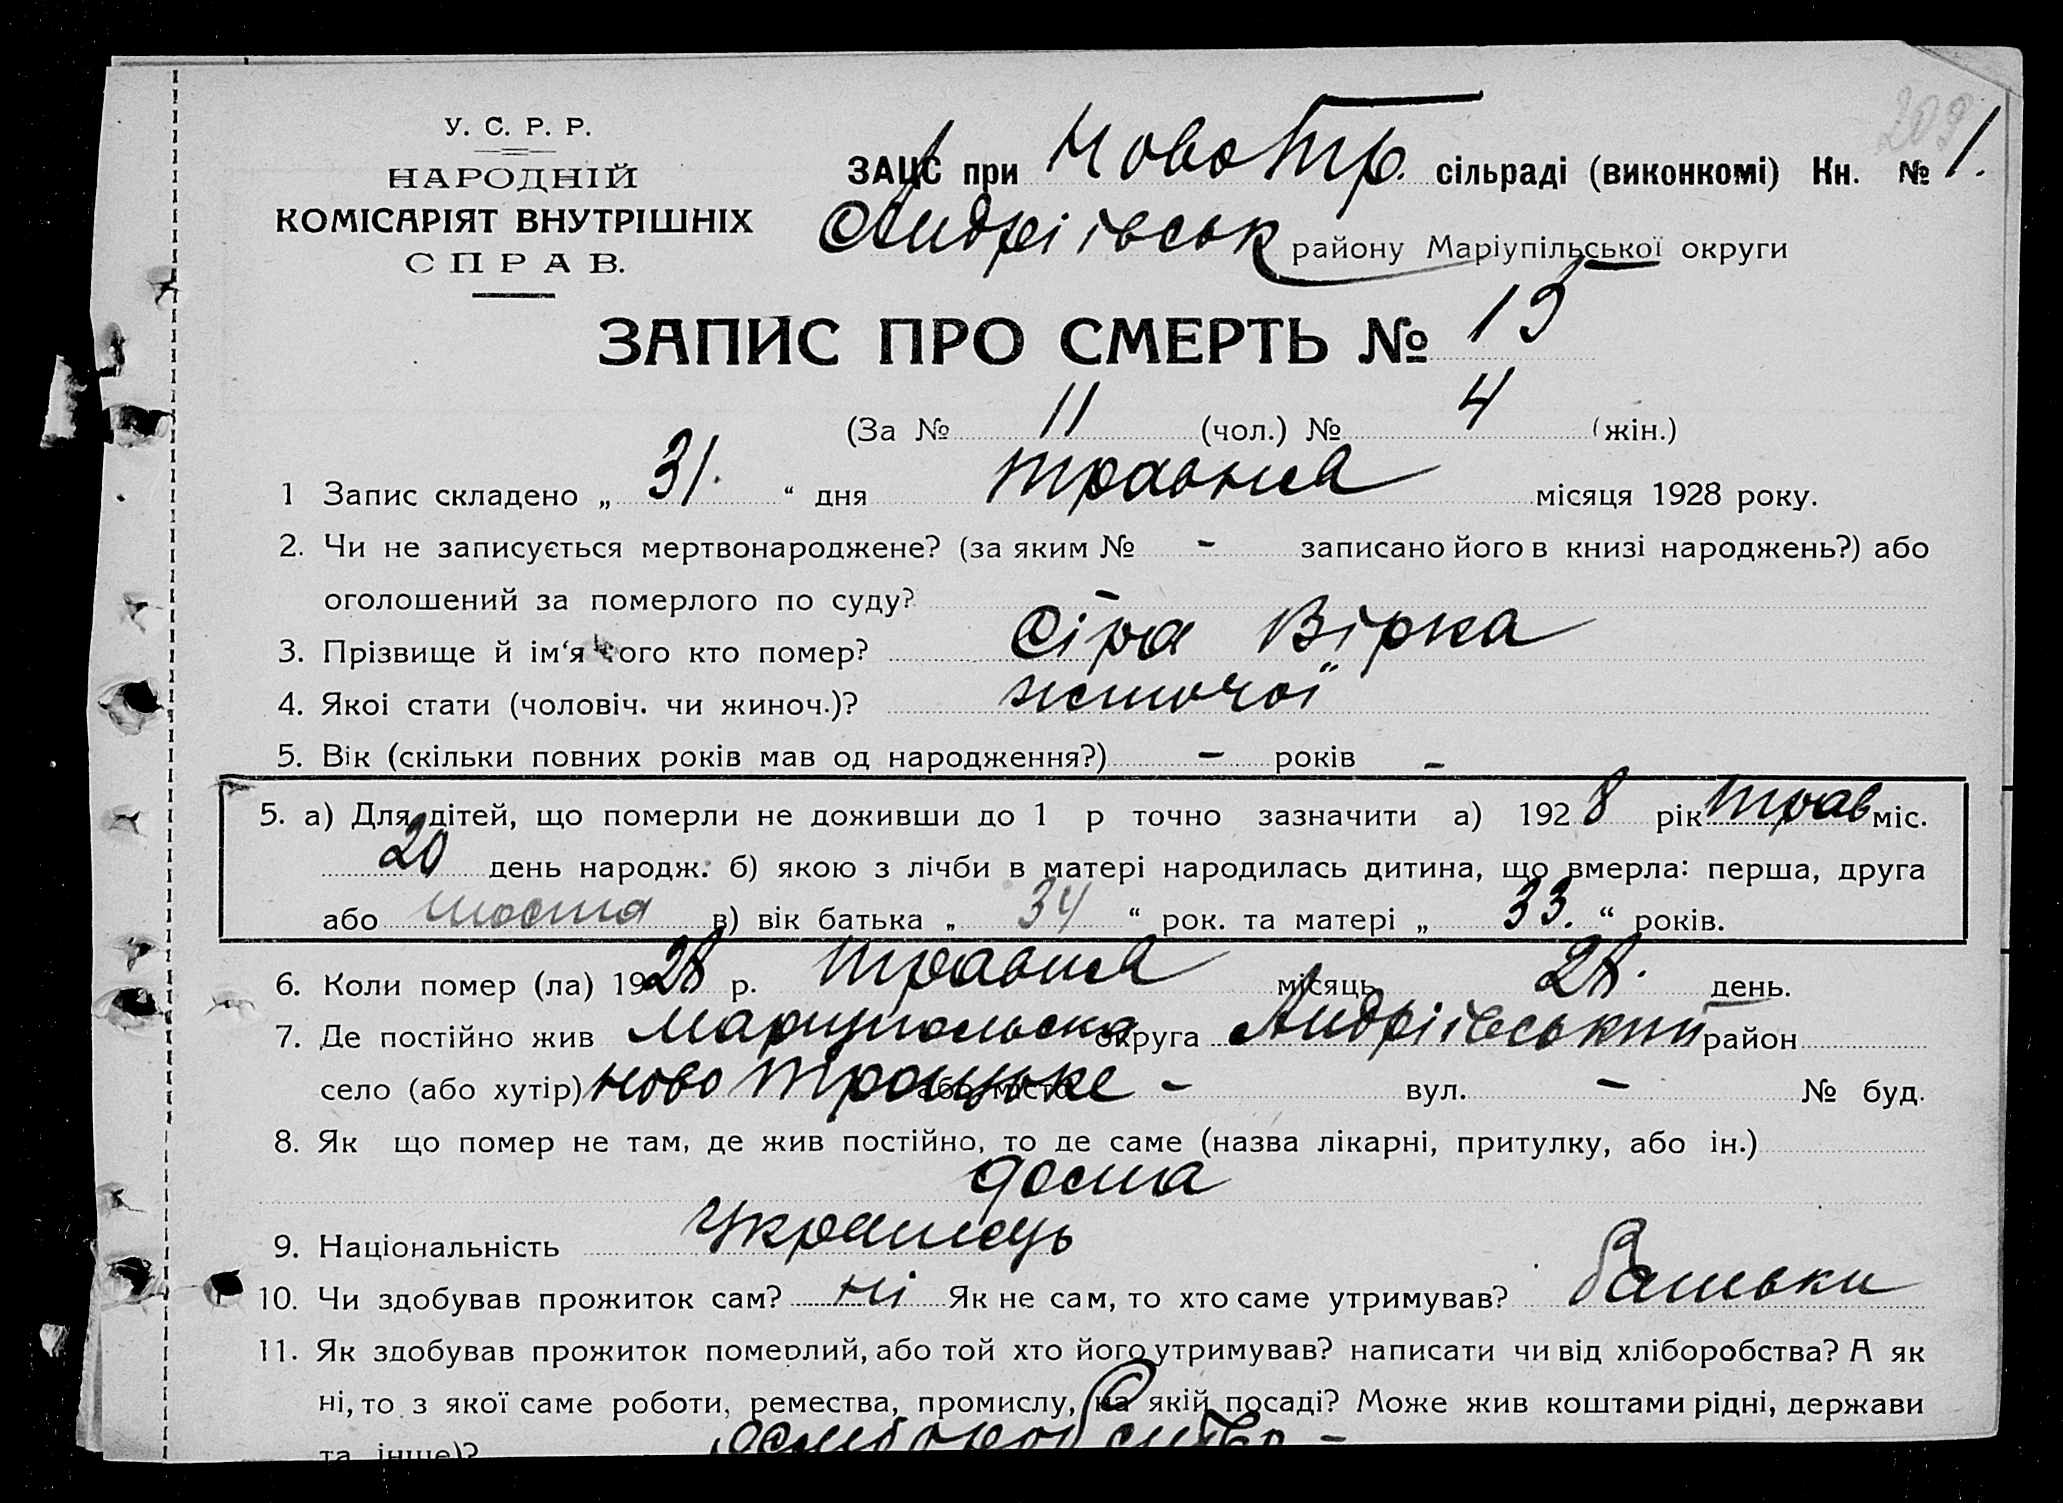 209
У. С. Р. Р.
НАРОДНІЙ
КОМІСАРІЯТ ВНУТРІШНІХ
СПРАВ.
ЗАЦС при Новотр. сільраді (виконкомі) Кн. № 1.
Андріївськ району Маріупільської округи
ЗАПИС ПРО СМЕРТЬ № 15
(За № 11 (чол.) № 4 (жін.)
1 Запис складено „ 31. “ дня травня місяця 1928 року.
2. Чи не записується мертвонароджене? (за яким № - записано його в книзі народжень?) або
оголошений за померлого по суду? -
3. Прізвище й ім‘я того кто помер? Сіра Вірка
4. Якоі стати (чоловіч. чи жиноч.)? жіночої
5. Вік (скільки повних років мав од народження?) - років -
5. а) Для дітей, що померли не доживши до 1 р точно зазначити а) 1928 рік трав міс.
20 день народж. б) якою з лічби в матері народилась дитина, що вмерла: перша, друга
або шоста в) вік батька „ 34 “ рок. та матері „ 33. “ років.
6. Коли помер (ла) 1928 р. травня місяць 28. день.
7. Де постійно жив Мариупольска округа Андріївський район
село (або хутір) Ново Троцьке або місто - вул. - № буд.
8. Як що помер не там, де жив постійно, то де саме (назва лікарні, притулку, або ін.)
дома
9. Національність Українець
10. Чи здобував прожиток сам? Ні Як не сам, то хто саме утримував? Батьки
11. Як здобував прожиток померлий, або той хто його утримував? написати чи від хліборобства? А як
ні, то з якої саме роботи, ремества, промислу, на якій посаді? Може жив коштами рідні, держави
та інше)?